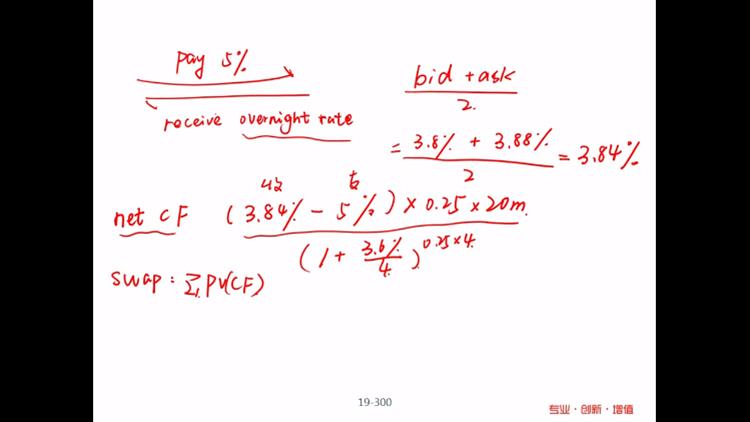 pay 5%
receive overnight rate
bid + ask
2.
= 3.8% + 3.88% = 3.84%
2
收 支
net CF (3.84% - 5%) × 0.25 × 20m.
(1 + 3.6%/4)^0.25×4
swap : ∑PV(CF)
19-300
专业·创新·增值